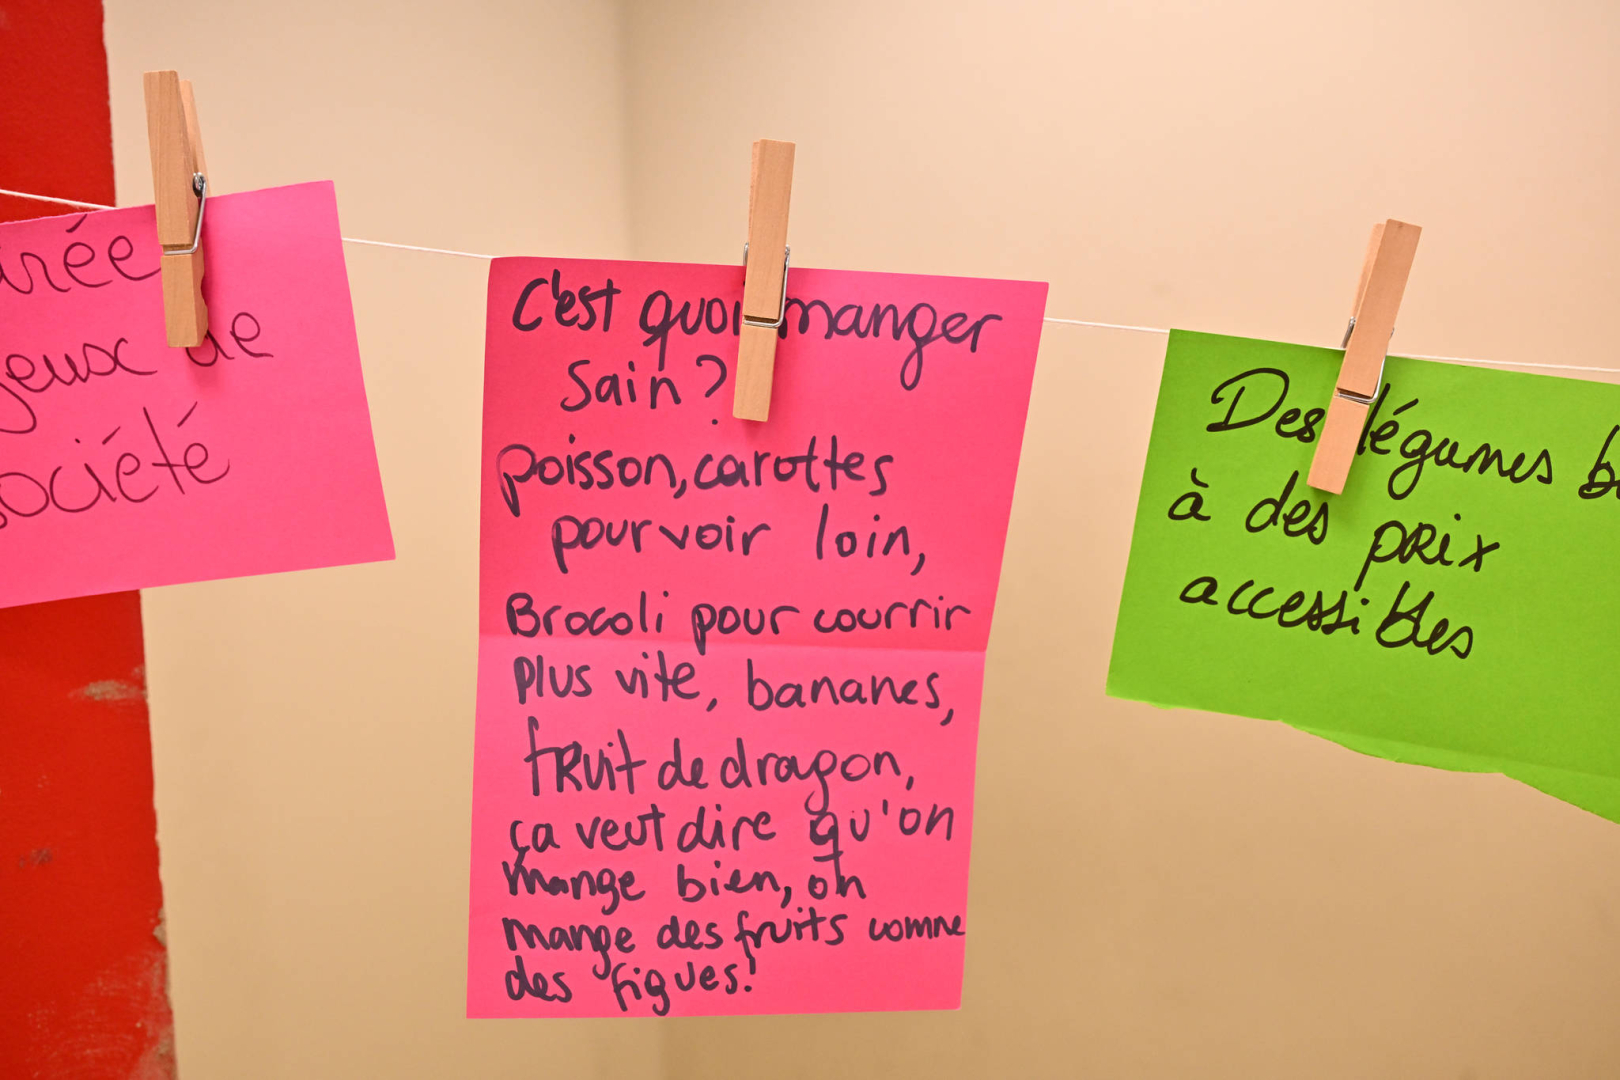 irée
jeux de
société
C'est quoi manger
sain ?
poisson, carottes
pour voir loin,
Brocoli pour courrir
plus vite, bananes,
fruit de dragon,
ça veut dire qu'on
mange bien, on
mange des fruits comme
des figues!
Des légumes b
à des prix
accessibles